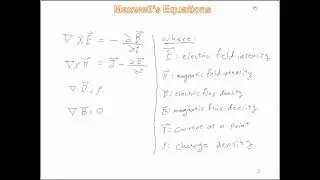 Maxwell's Equations
∇ × E⃗ = − ∂B⃗/∂t
∇ × H⃗ = J⃗ − ∂D⃗/∂t
∇ · D⃗ = ρ
∇ · B⃗ = 0
Where:
E⃗: electric field intensity
H⃗: magnetic field intensity
D⃗: electric flux density
B⃗: magnetic flux density
J⃗: Current at a point
ρ: charge density
2